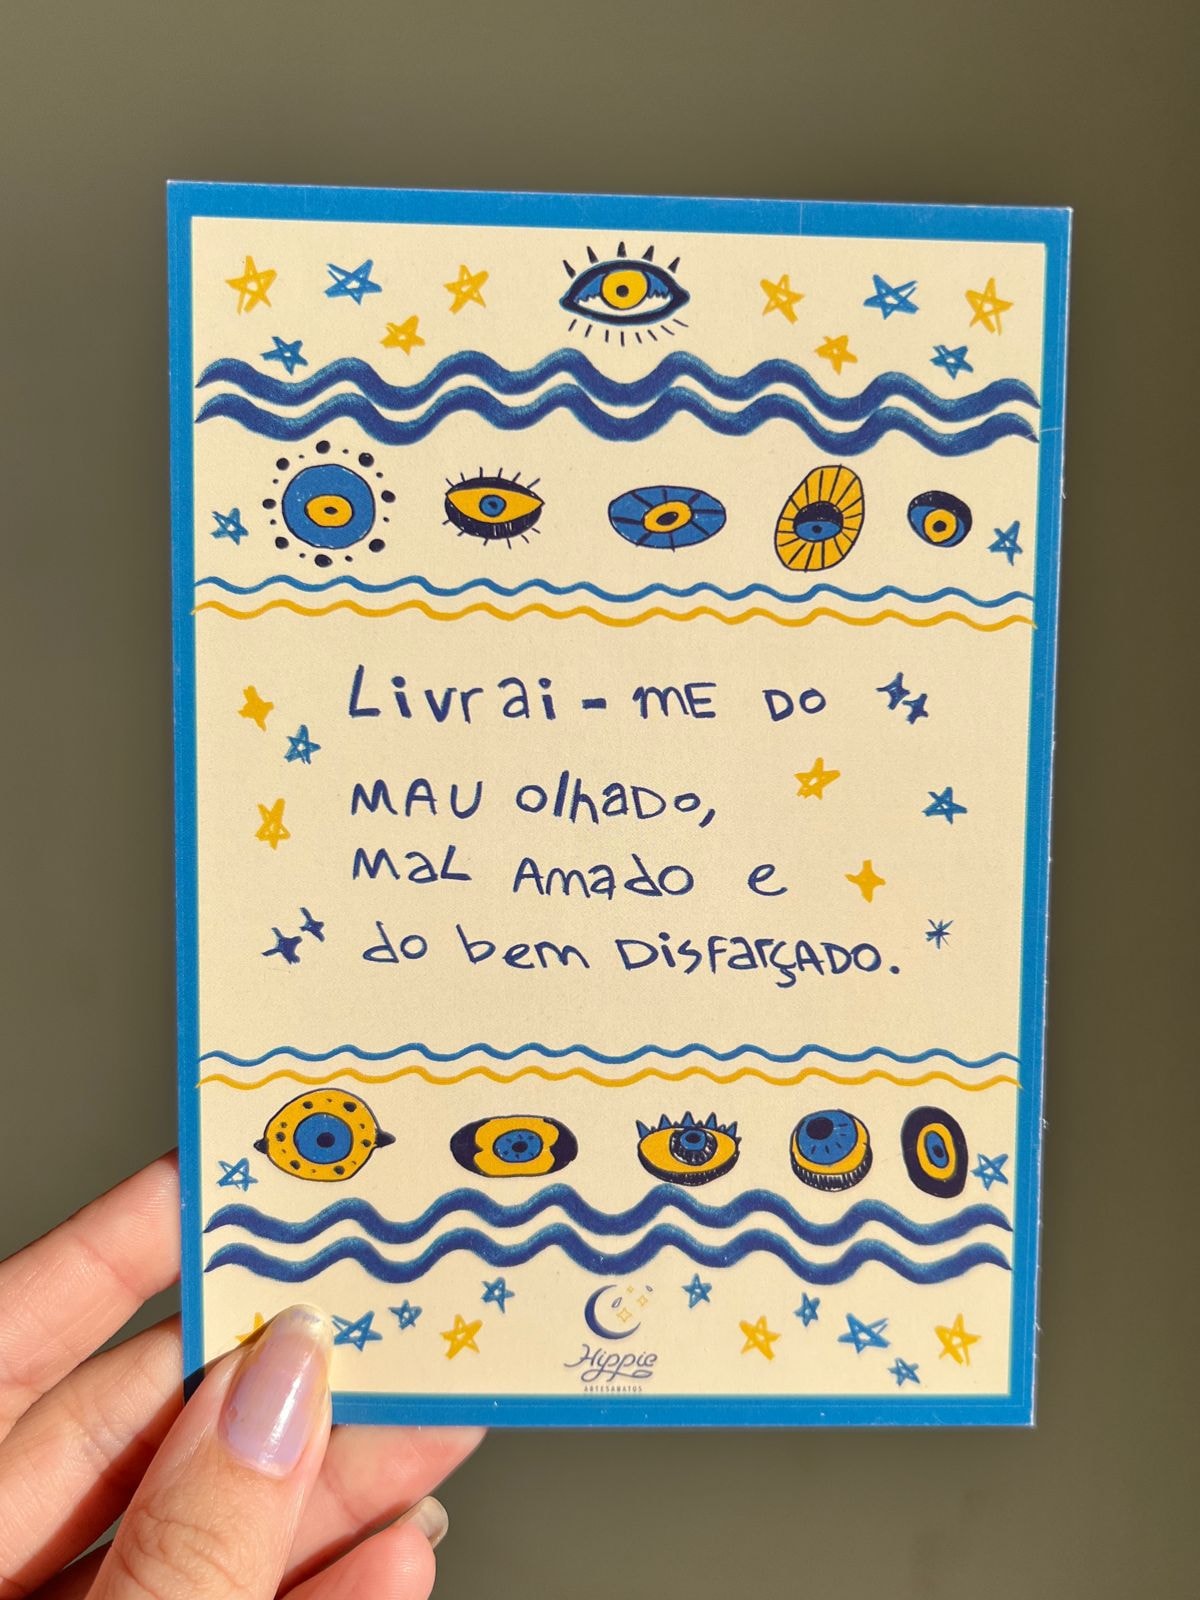 Livrai-me do
mau olhado,
mal amado e
do bem disfarçado.
Hippie
ARTESANATOS